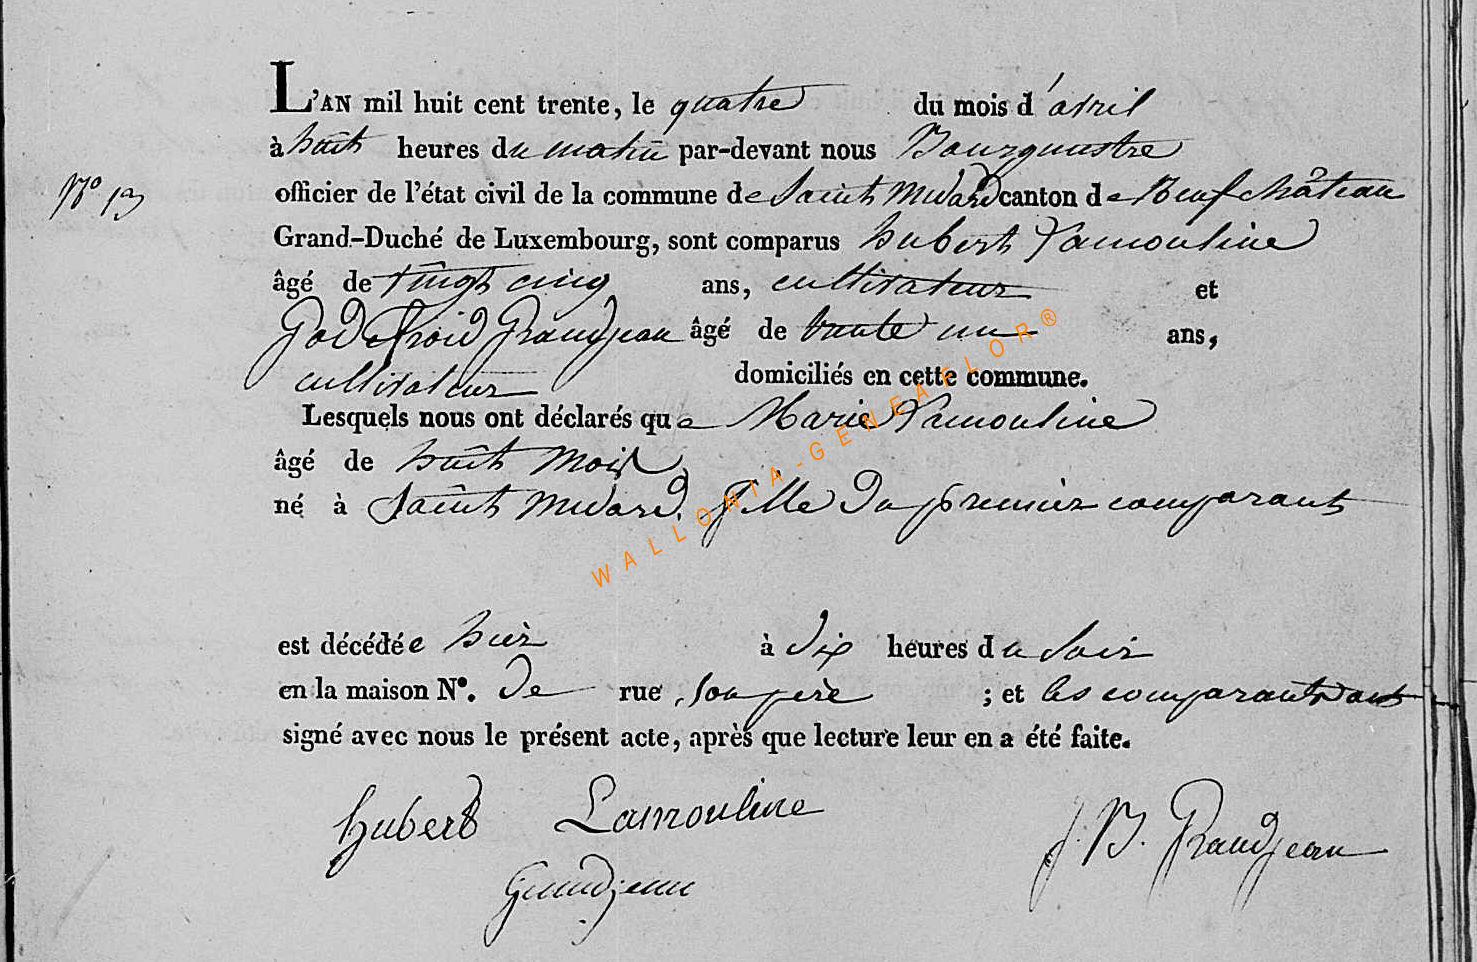 L'AN mil huit cent trente, le quatre du mois d'avril
à huit heures du matin par-devant nous Bourguestre
N° 13
officier de l'état civil de la commune de Saint Medard canton de Neufchâteau
Grand-Duché de Luxembourg, sont comparus hubert Lamouline
âgé de vingt cinq ans, cultivateur et
Godefroid Grandjean âgé de trente un ans,
cultivateur domiciliés en cette commune.
Lesquels nous ont déclarés que Marie Lamouline
âgé de huit mois
né à Saint Medard, fille du premier comparant
est décédée hier à dix heures du soir
en la maison N°. de rue son père ; et les comparants ont
signé avec nous le présent acte, après que lecture leur en a été faite.
hubert Lamouline
J. B. Grandjean
Grandjean
WALLONIA-GENEAFLOR®